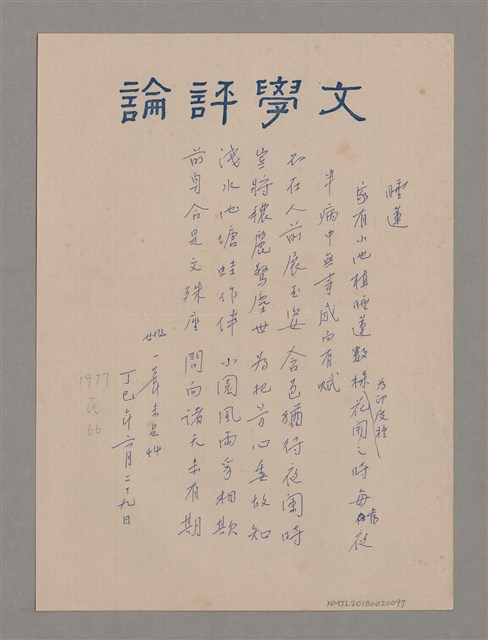 文學評論
睡蓮
家有小池植睡蓮數株花開之時每在夜
為印度種
當
半病中無事感而有賦
不在人前展玉姿 含苞猶待夜闌時
豈將穠麗驚塵世 為把芳心垂故知
淺水池塘蛙作伴 小園風雨爭相欺
前身合是文殊座 問向諸天未有期
丁巳年六月二十九日
1977
民
66
NMTL20180020097